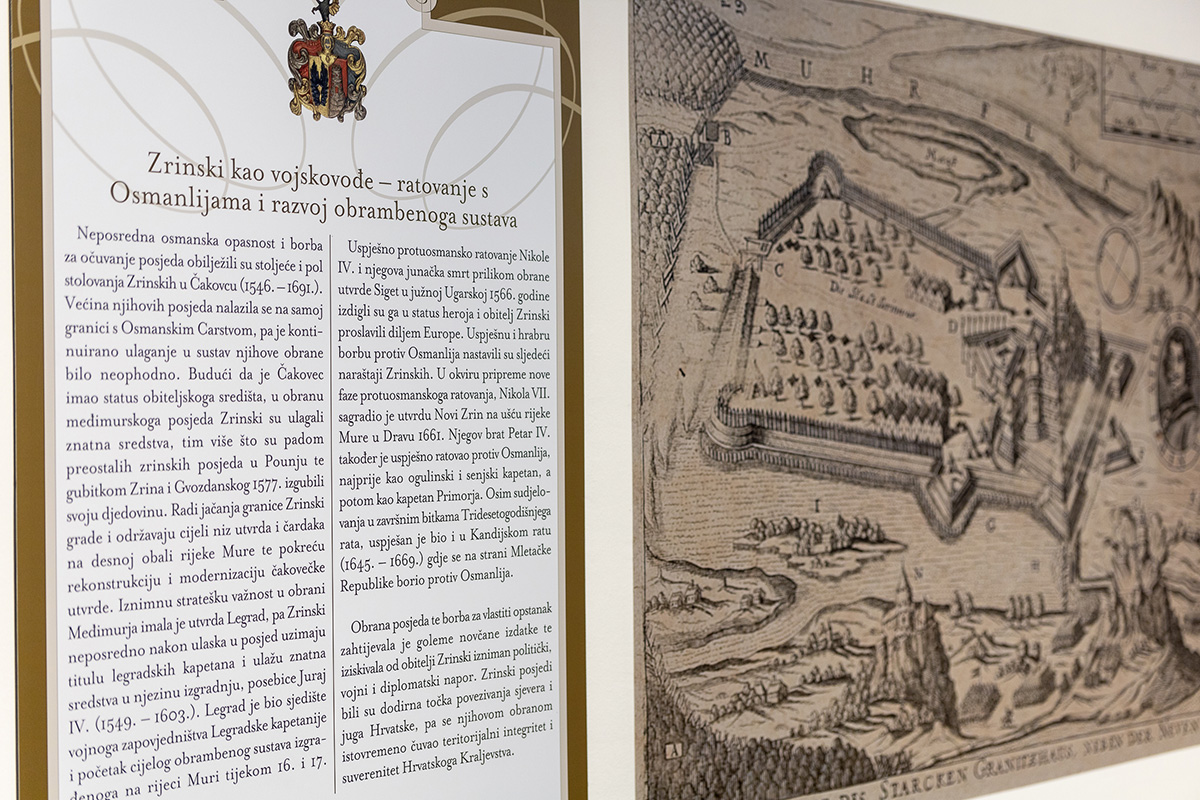 Zrinski kao vojskovođe – ratovanje s
Osmanlijama i razvoj obrambenoga sustava
Neposredna osmanska opasnost i borba
za očuvanje posjeda obilježili su stoljeće i pol
stolovanja Zrinskih u Čakovcu (1546. – 1691.).
Većina njihovih posjeda nalazila se na samoj
granici s Osmanskim Carstvom, pa je konti-
nuirano ulaganje u sustav njihove obrane
bilo neophodno. Budući da je Čakovec
imao status obiteljskoga središta, u obranu
međimurskoga posjeda Zrinski su ulagali
znatna sredstva, tim više što su padom
preostalih zrinskih posjeda u Pounju te
gubitkom Zrina i Gvozdanskog 1577. izgubili
svoju djedovinu. Radi jačanja granice Zrinski
grade i održavaju cijeli niz utvrda i čardaka
na desnoj obali rijeke Mure te pokreću
rekonstrukciju i modernizaciju čakovečke
utvrde. Iznimnu stratešku važnost u obrani
Međimurja imala je utvrda Legrad, pa Zrinski
neposredno nakon ulaska u posjed uzimaju
titulu legradskih kapetana i ulažu znatna
sredstva u njezinu izgradnju, posebice Juraj
IV. (1549. – 1603.). Legrad je bio sjedište
vojnoga zapovjedništva Legradske kapetanije
i početak cijelog obrambenog sustava izgra-
đenoga na rijeci Muri tijekom 16. i 17.
Uspješno protuosmansko ratovanje Nikole
IV. i njegova junačka smrt prilikom obrane
utvrde Siget u južnoj Ugarskoj 1566. godine
izdigli su ga u status heroja i obitelj Zrinski
proslavili diljem Europe. Uspješnu i hrabru
borbu protiv Osmanlija nastavili su sljedeći
naraštaji Zrinskih. U okviru pripreme nove
faze protuosmanskoga ratovanja, Nikola VII.
sagradio je utvrdu Novi Zrin na ušću rijeke
Mure u Dravu 1661. Njegov brat Petar IV.
također je uspješno ratovao protiv Osmanlija,
najprije kao ogulinski i senjski kapetan, a
potom kao kapetan Primorja. Osim sudjelo-
vanja u završnim bitkama Tridesetogodišnjega
rata, uspješan je bio i u Kandijskom ratu
(1645. – 1669.) gdje se na strani Mletačke
Republike borio protiv Osmanlija.
Obrana posjeda te borba za vlastiti opstanak
zahtijevala je goleme novčane izdatke te
iziskivala od obitelji Zrinski izniman politički,
vojni i diplomatski napor. Zrinski posjedi
bili su dodirna točka povezivanja sjevera i
juga Hrvatske, pa se njihovom obranom
istovremeno čuvao teritorijalni integritet i
suverenitet Hrvatskoga Kraljevstva.
MUHR FLUV
A
B
C
D
I
G
N
H
A
DIS STARCKEN GRANITZHAUS, NEBEN DER